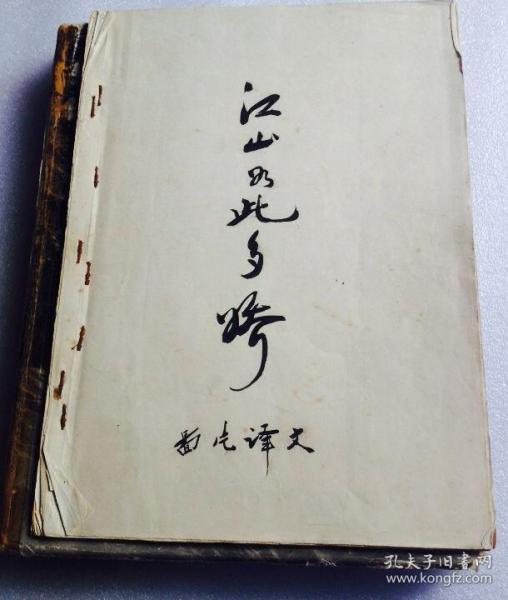 江山如此多娇
图片译文
孔夫子旧书网
www.kongfz.com